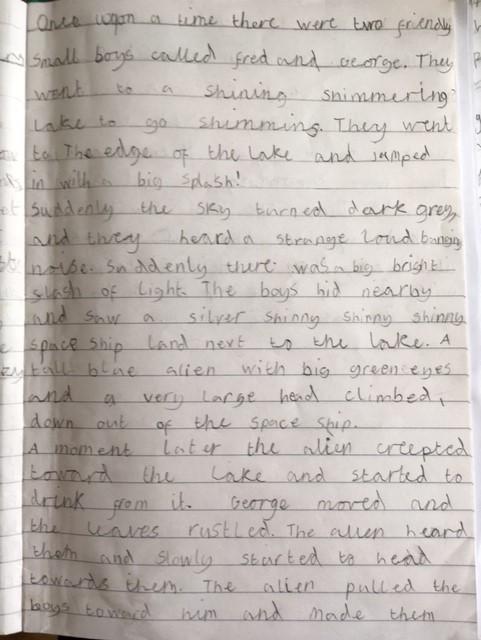 Once upon a time there were two friendly
small boys called fred and George. They
went to a shining shimmering
Lake to go swimming. They went
to The edge of the Lake and jumped
in with a big splash!
Suddenly the sky turned dark grey,
and they heard a strange loud banging
noise. Suddenly there was a big bright
slash of light. The boys hid nearby
and saw a silver shinny shinny shinny
space ship land next to the lake. A
tall blue alien with big green eyes
and a very large head climbed,
down out of the space ship.
A moment later the alien creepted
toward the Lake and started to
drink from it. George moved and
the leaves rustled. The alien heard
them and slowly started to head
towards them. The alien pulled the
boys toward him and made them